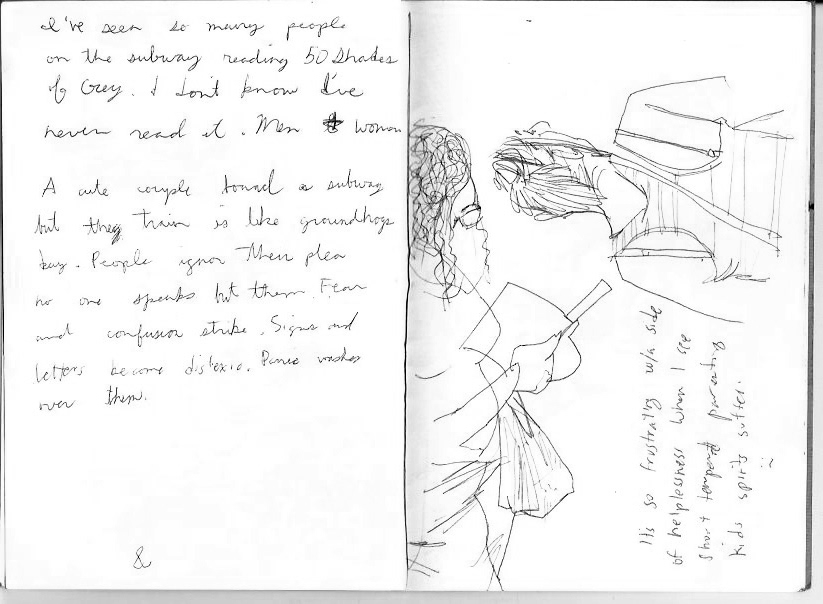 I've seen so many people
on the subway reading 50 Shades
of Grey. I don't know I've
never read it. Men & Women
A cute couple found a subway
but they train is like groundhogs
day. People ignor their plea
no one speaks but them. Fear
and confusion strike. Signs and
letters become dislexia. Panic washes
over them.
&
Its so frustrating w/a side
of helplessness when I see
short temperd parenting
kids spirits suffer.
:(